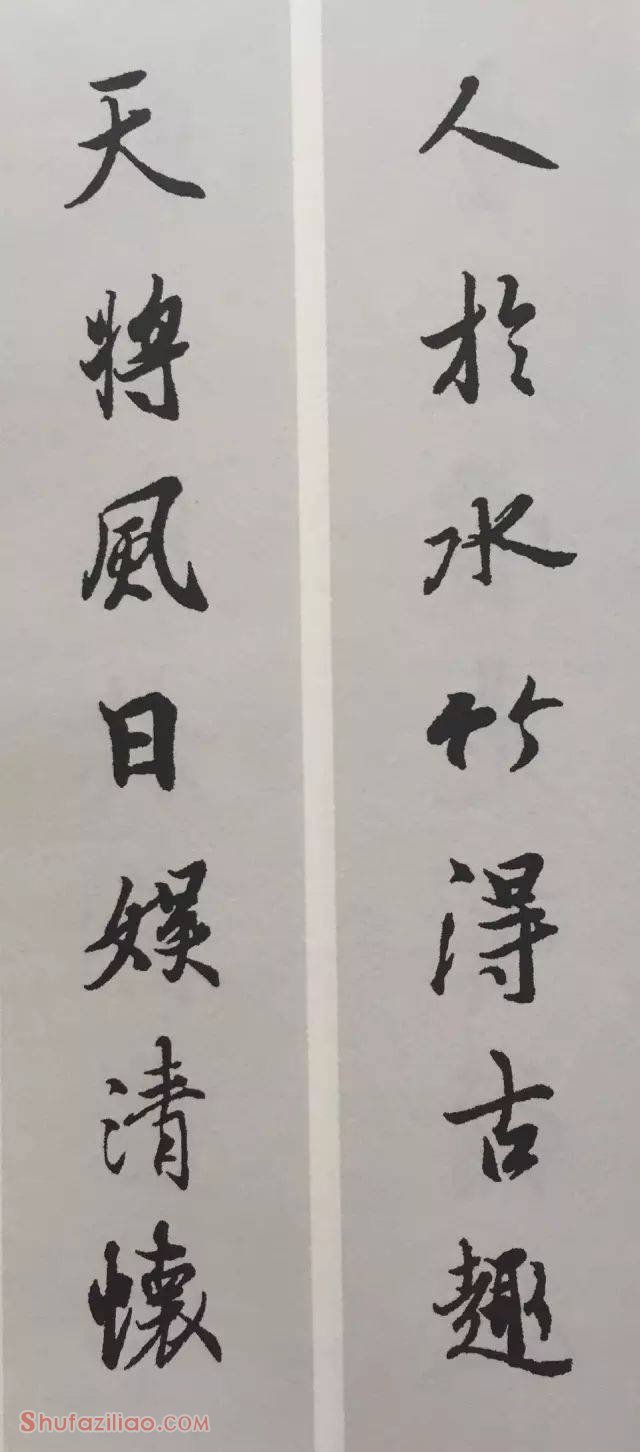 人於水竹得古趣
天將風日娱清懷
Shufaziliao.COM